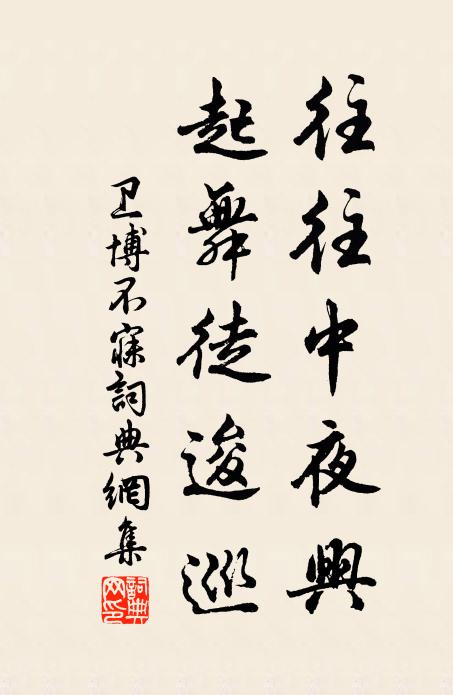 往往中夜興
起舞徒逡巡
卫博不寐詞典網集
詞典
网印